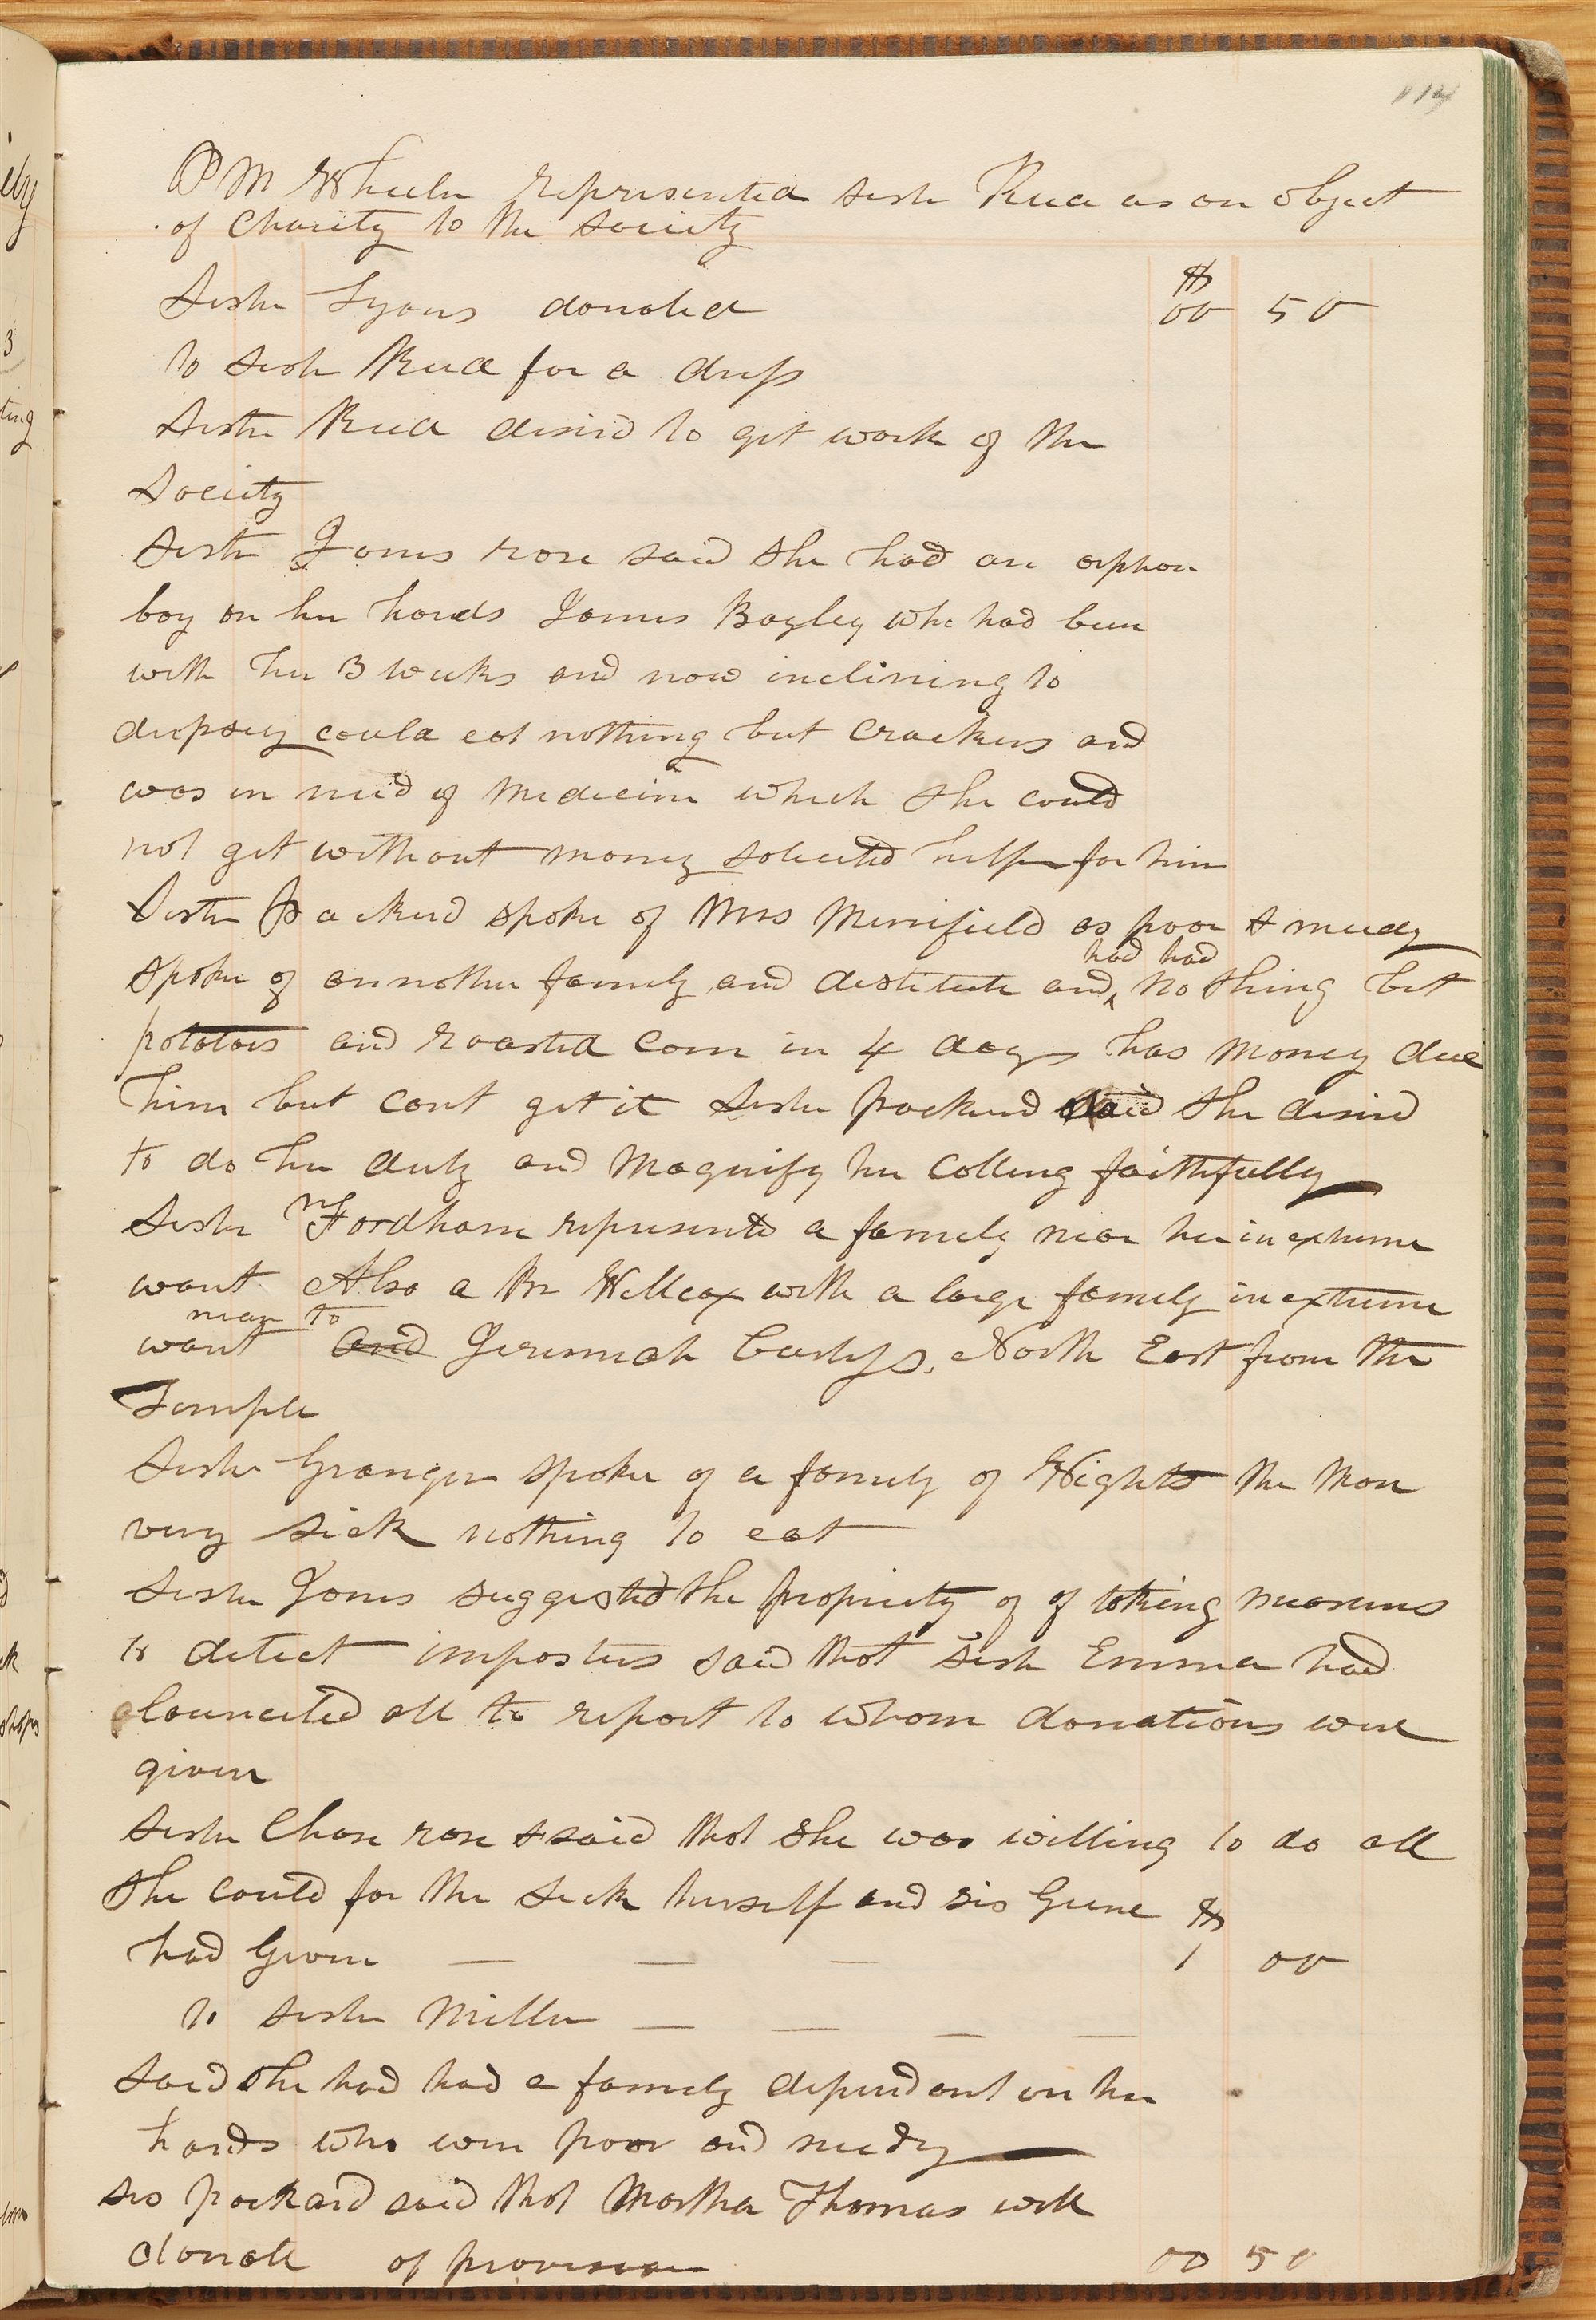 114
P M Wheeler represented sister Rua as an object
of Charity to the society
Sister Lyons donated $ 00 50
to sister Rua for a dress
Sister Rua desired to get work of the
Society
Sister Jones rose said she had an orphan
boy on her hands James Bagley who had been
with her 3 weeks and now inclining to
dropsey could eat nothing but crackers and
was in need of medecine which she could
not get without money solicited help for him
Sister Packerd spoke of Mrs Merrifield as poor & needy
spoke of annother family and destitute and had had nothing but
potatoes and roasted corn in 4 days has money due
him but cant get it sister packerd said she desired
to do her duty and magnify her Calling faithfully
Sister M Fordham represented a family near her in extreme
want Also a Br Willcox with a large family in extreme
want near to and Jeremiah Curtys, North East from the
Temple
Sister Granger spoke of a family of Wights the man
very sick nothing to eat
Sister Jones suggested the propriety of of taking measures
to detect imposters said that sister Emma had
councited all to report to whom donations were
given
Sister Chase rose & said that she was willing to do all
she could for the sick herself and sis Green
had Given — — — $ 1 00
to sister Miller — — — —
said she had had a family dependant on her
hands who were poor and needy
sis packard said that Martha Thomas will
donate of provision 00 50